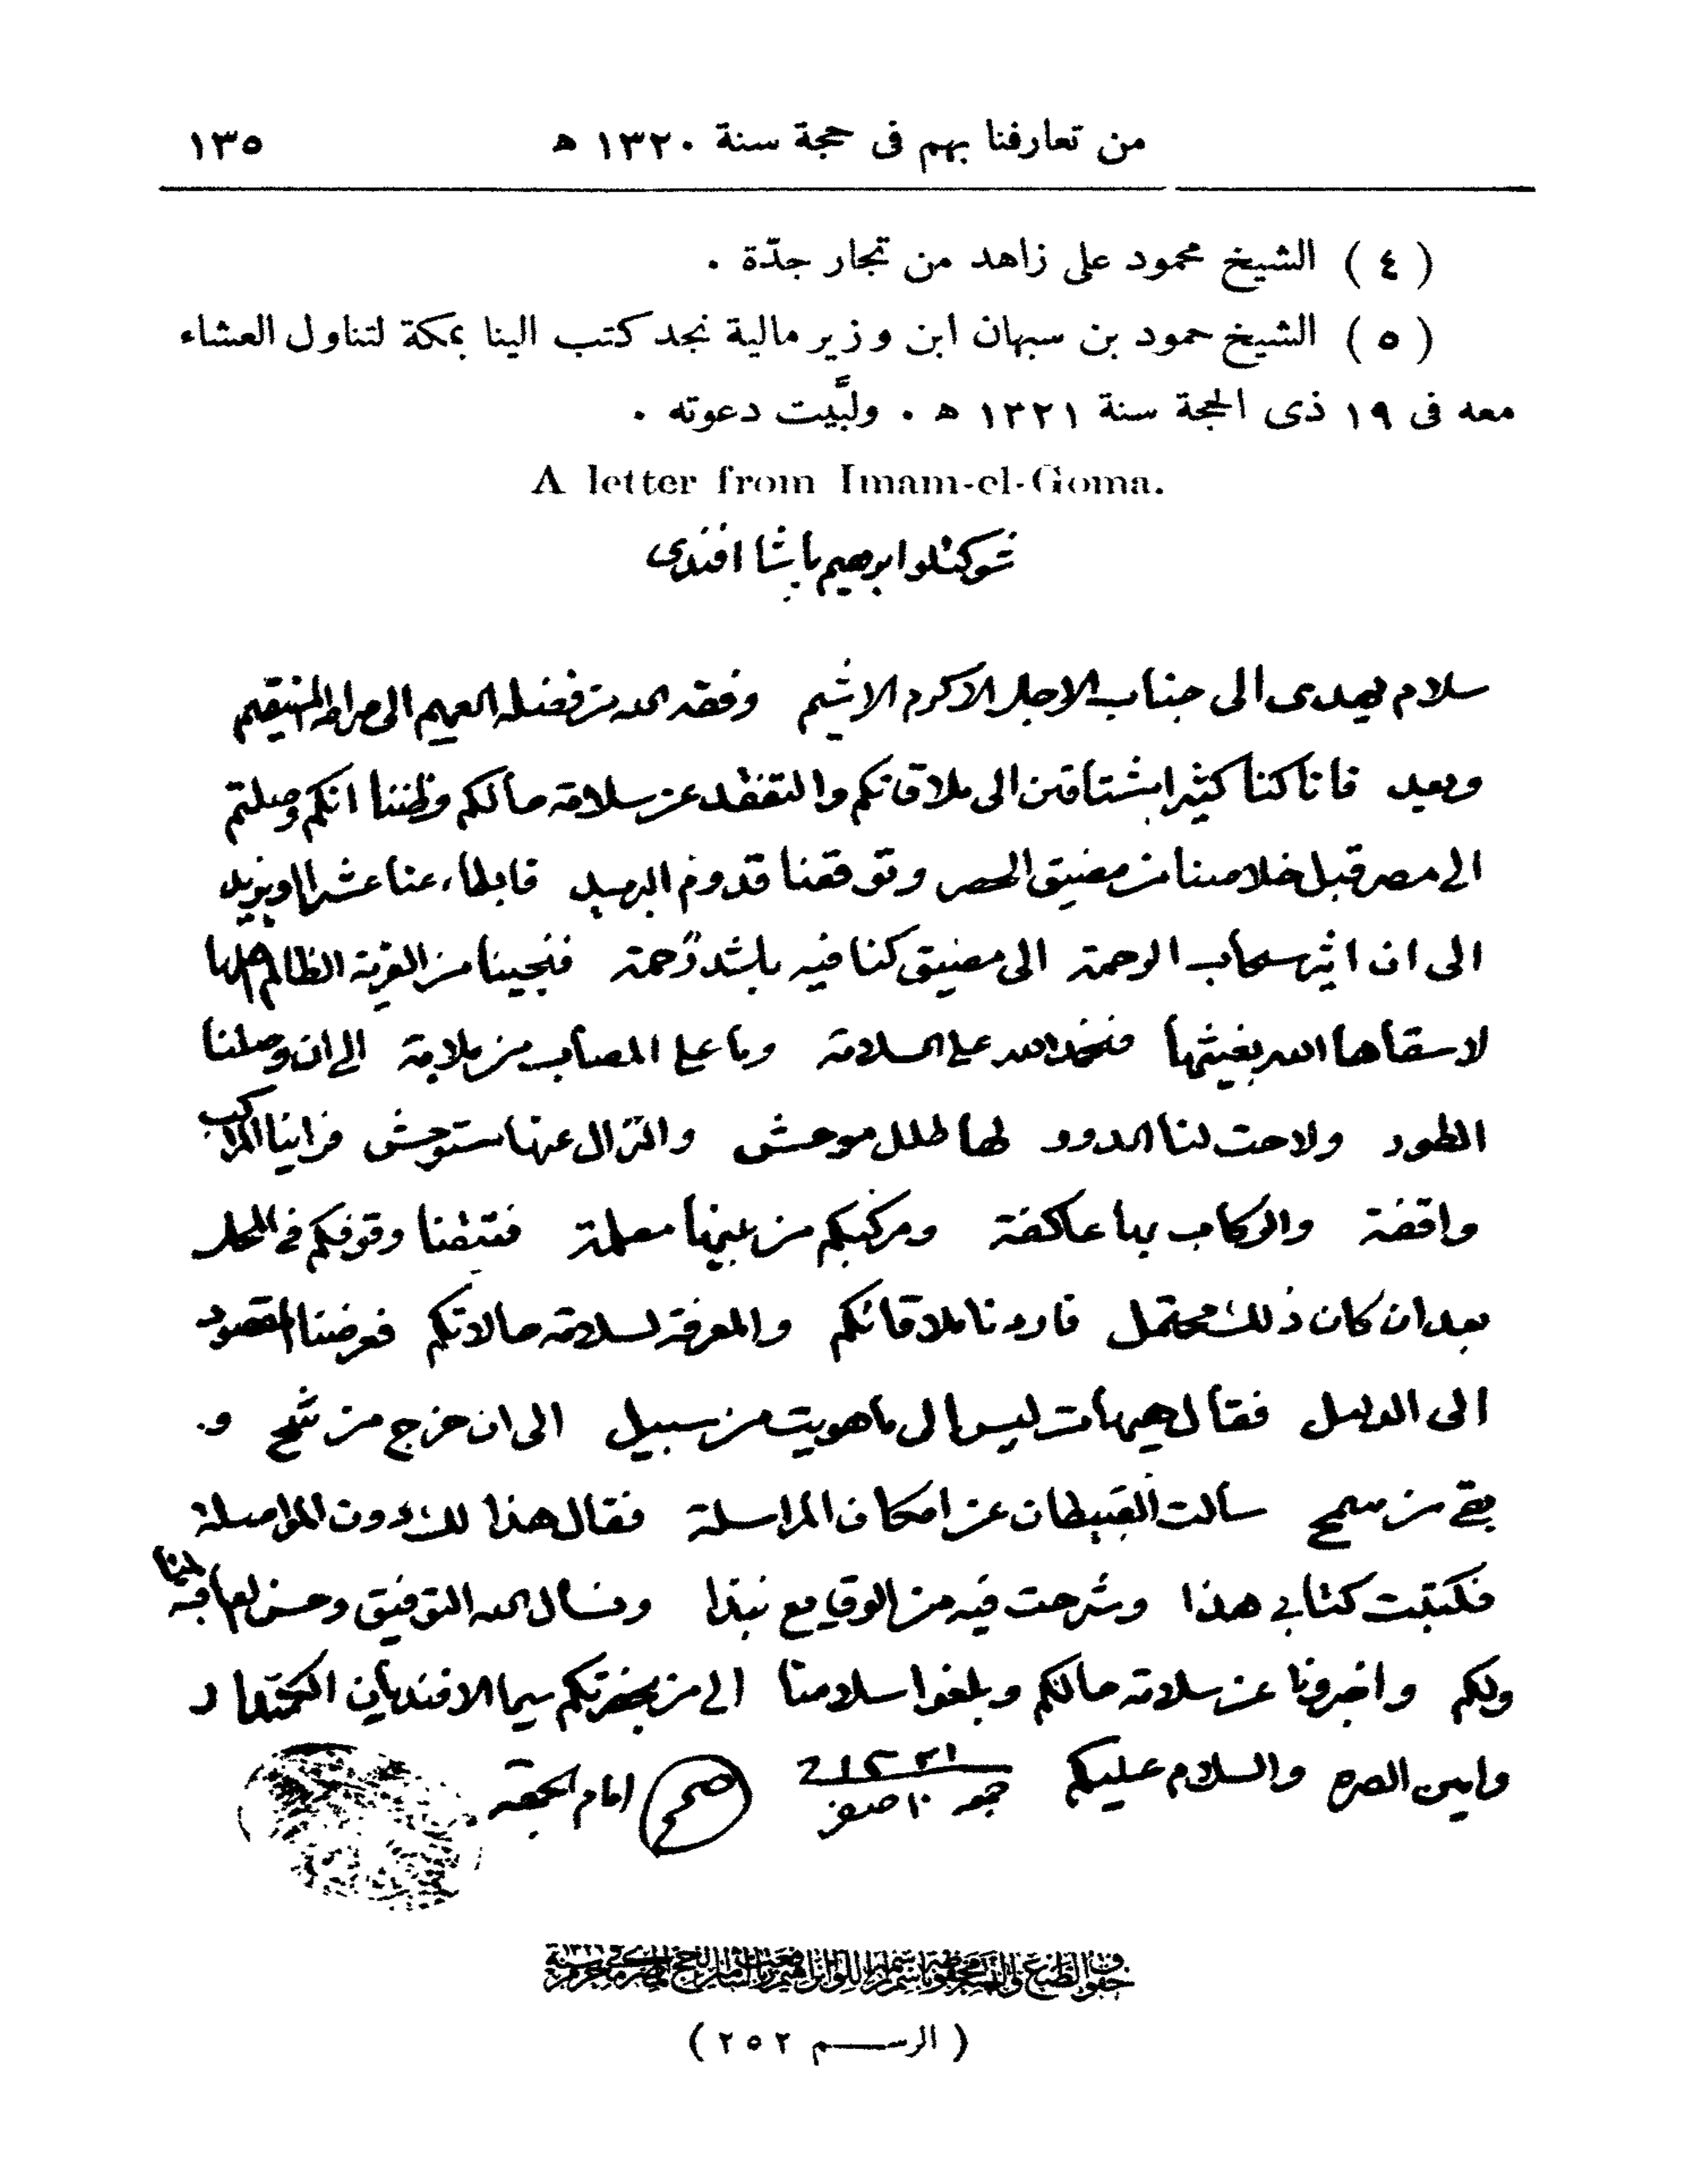 من تعارفنا بهم فى حجة سنة ١٣٢٠ ه ١٣٥
( ٤ ) الشيخ محمود على زاهد من تجار جدّة .
( ٥ ) الشيخ حمود بن سبهان ابن وزير مالية نجد كتب الينا بمكة لتناول العشاء
معه فى ١٩ ذى الحجة سنة ١٣٢١ ه . ولبَّيت دعوته .
A letter from Imam-el-Goma.
شوكتلو ابرهيم باشا افندى
سلام يهدى الى جناب الاجل الاكرم الاشيم وفقه الله من فضله العميم الى صراطه المستقيم
وبعد فانا كنا كثيرا مشتاقين الى ملاقاتكم والتفقد عن سلامة حالكم وظننا انكم وصلتم
الى مصر قبل خلاصنا من مضيق الحصر وتوقفنا قدوم البريد فابطاء عنا عشرا او يزيد
الى ان اثر سحاب الرحمة الى مضيق كنا فيه باشد زحمة فنجينا من القرية الظالم اهلها
لا سقاها الله بغيثها فنحمد الله على السلامة وما على المصاب من ملامة الى ان وصلنا
الطور ولاحت لنا الدور لها طلل موحش والنزال عنها مستوحش فراينا المراكب
واقفة والركاب بها عاكفة ومركبكم من بينها معلمة فتيقنا وقوفكم فى المحل
بعد ان كان ذلك محتمل فاردنا ملاقاتكم والمعرفة لسلامة حالاتكم فعرضنا المقصود
الى الدليل فقال هيهات ليس الى ما هويت من سبيل الى ان خرج من شح و
بقى من سمح سالت القبطان عن امكان المراسلة فقال هذا لك دون المواصلة
فكتبت كتابى هذا وشرحت فيه من الوقايع نبذا ونسال الله التوفيق وحسن العاقبة لنا
ولكم واخبرونا عن سلامة حالكم وبلغوا سلامنا الى من بحضرتكم سيما الافنديان
وامين الصره والسلام عليكم جمعه ١٠ صفر ١٣٢١ امام الجمعة
( الرسم ٢٥٢ )